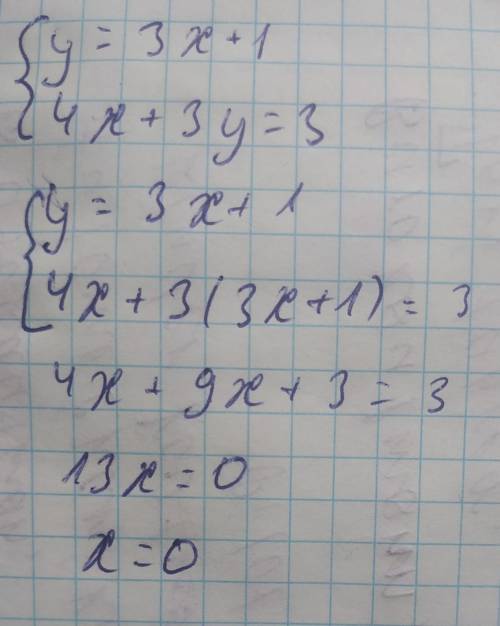 { y = 3x + 1
4x + 3y = 3
{ y = 3x + 1
4x + 3(3x+1) = 3
4x + 9x + 3 = 3
13x = 0
x = 0